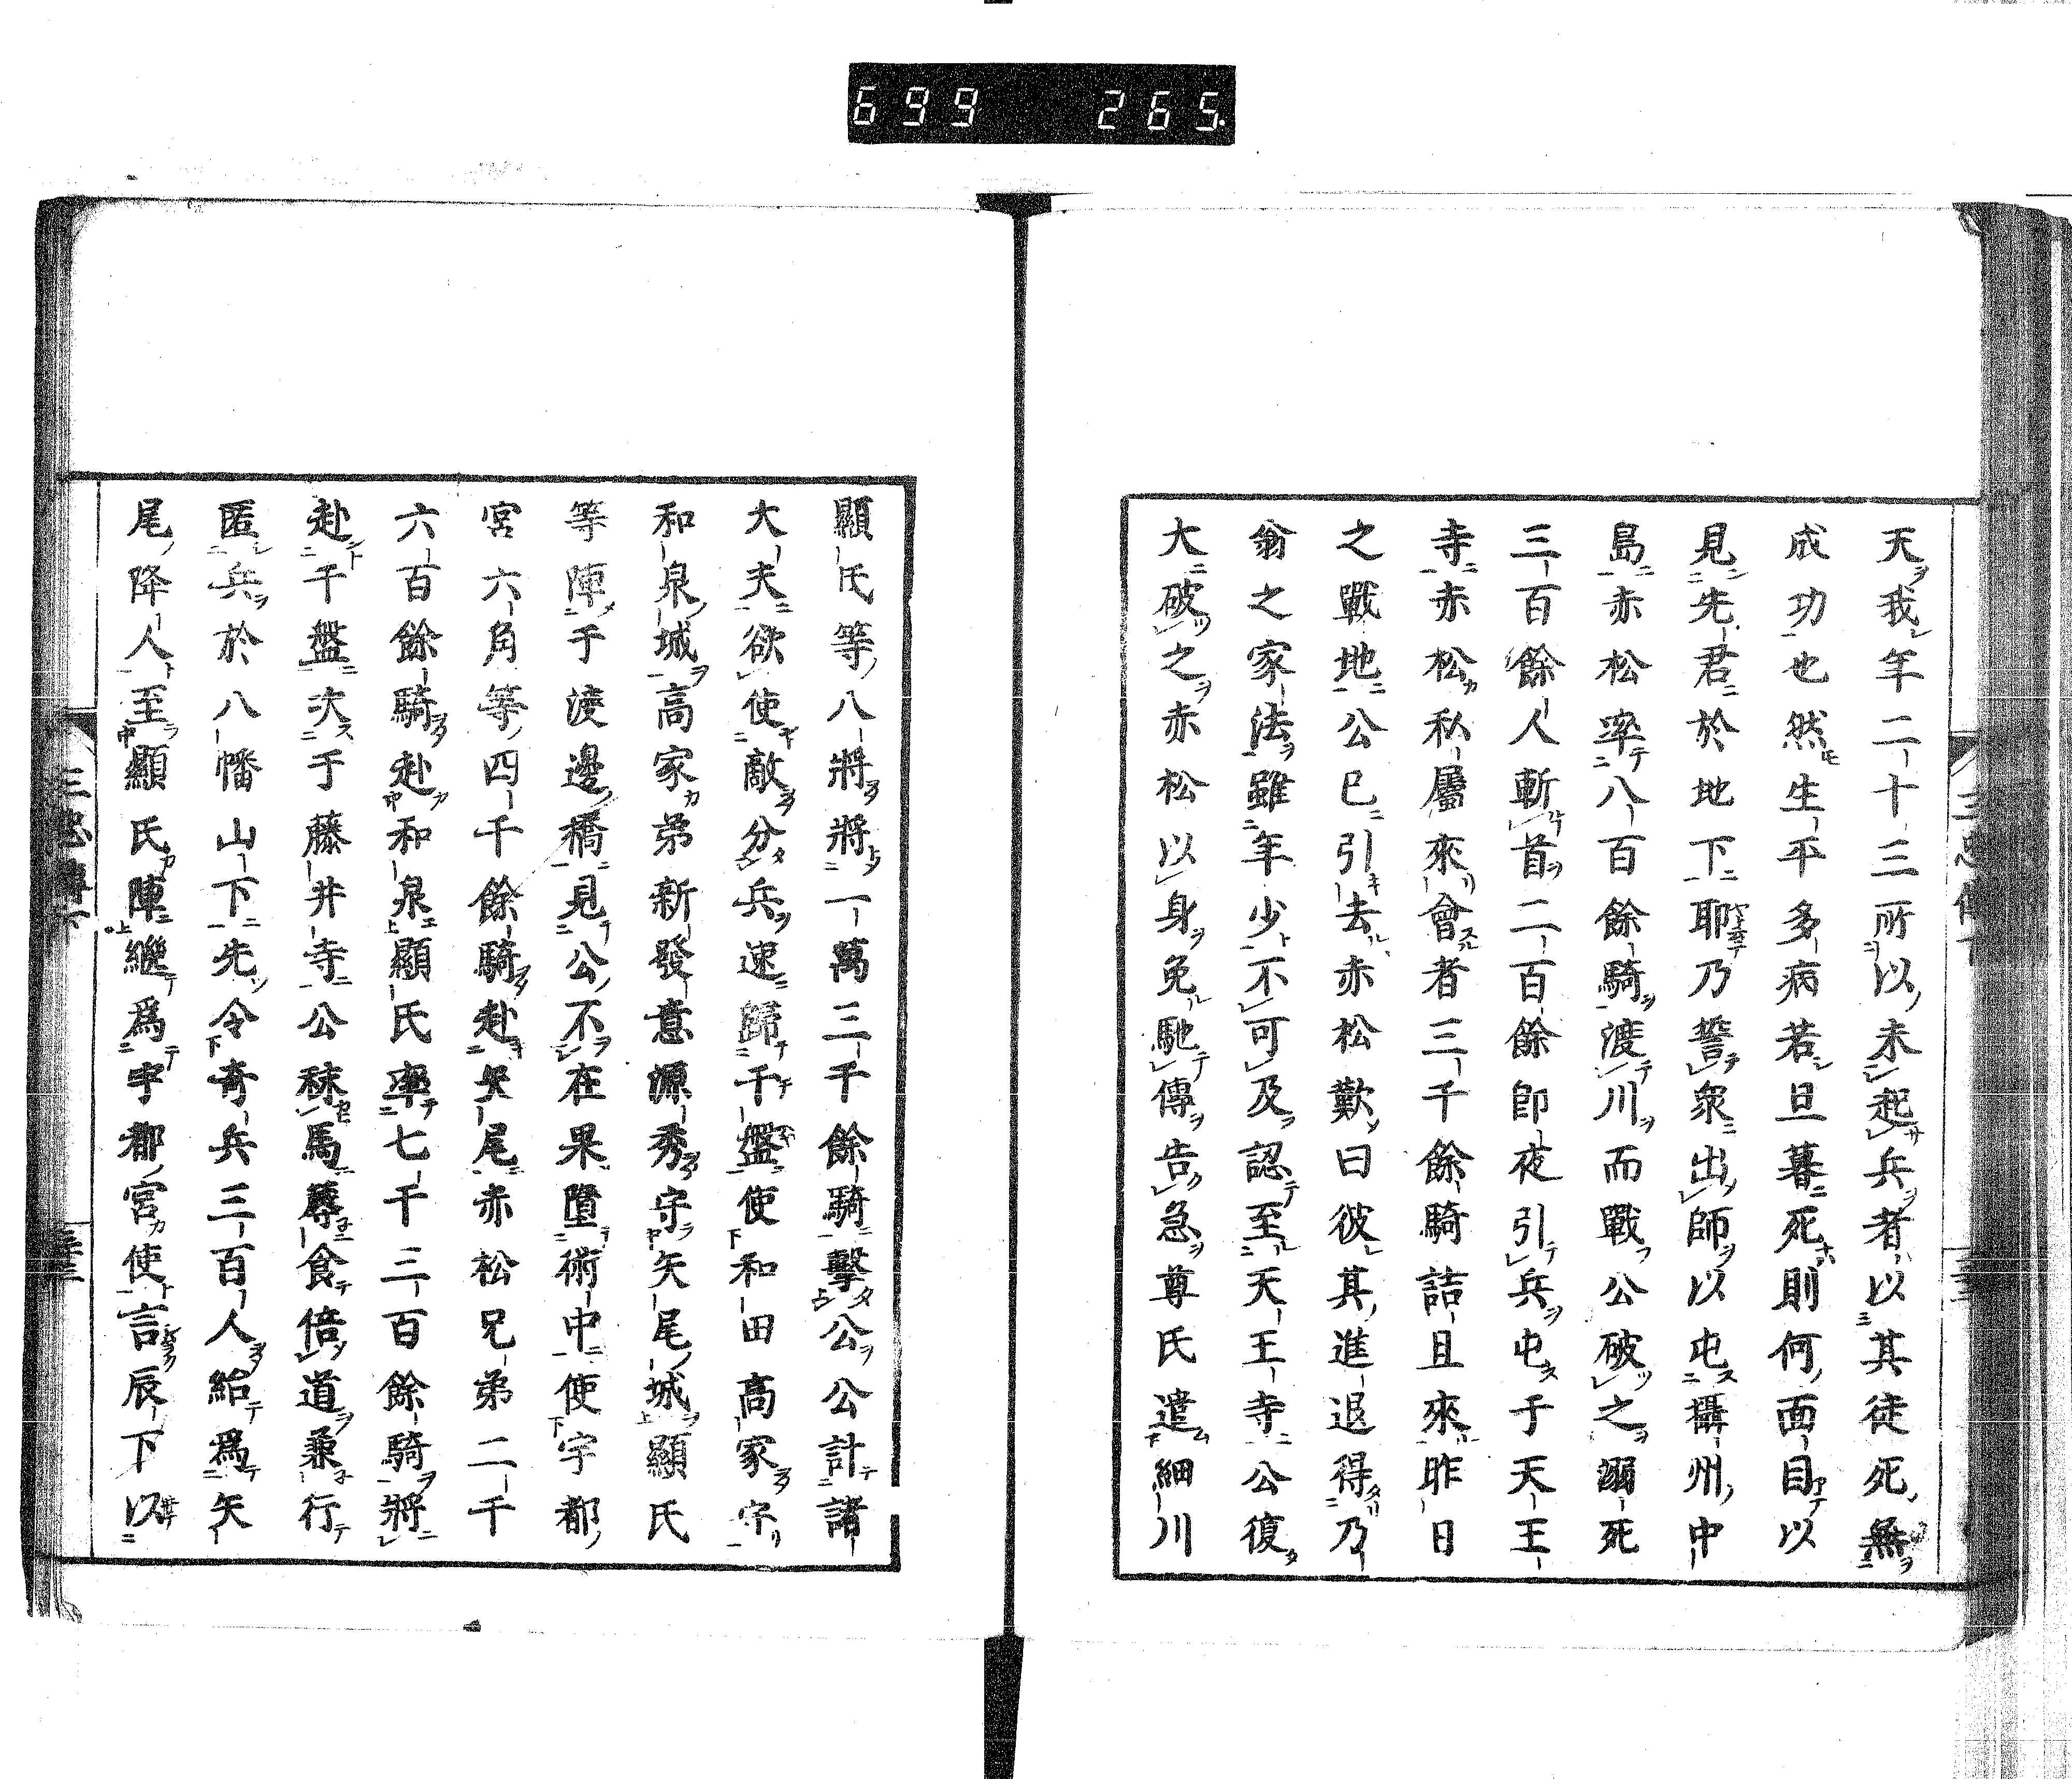 699 265
天我年二十三所以未起兵者以其徒死無
成功也然生平多病若旦暮死則何面目以
見先君於地下耶乃誓衆出師以屯攝州中
島赤松率八百餘騎渡川而戰公破之溺死
三百餘人斬首二百餘卽夜引兵屯于天王
寺赤松私屬來會者三千餘騎詰且來昨日
之戰地公已引去赤松歎曰彼其進退得乃
翁之家法雖年少不可及認至天王寺公復
大破之赤松以身免馳傳告急尊氏遣細川
顯氏等八將將一萬三千餘騎擊公公計諸
大夫欲使敵分兵速歸千盤使和田高家守
和泉城高家弟新發意源秀守矢尾城顯氏
等陣于渡邊橋見公不在果墮術中使宇都
宮六角等四千餘騎赴矢尾赤松兄弟二千
六百餘騎赴和泉顯氏率七千三百餘騎將
赴千盤次于藤井寺公秣馬蓐食倍道兼行
匿兵於八幡山下先令奇兵三百人紿爲矢
尾降人至顯氏陣繼爲宇都宮使言辰下以
三忠傳下